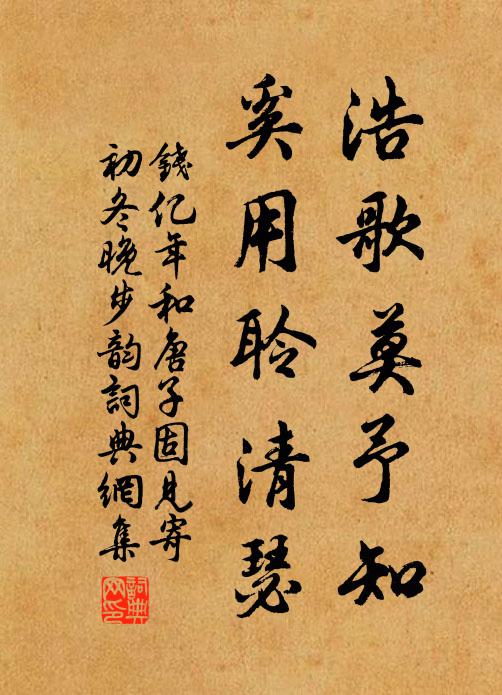 浩歌莫予知
奚用聆清瑟
錢亿年和唐子固見寄
初冬晚步韵詞典網集
詞典网印